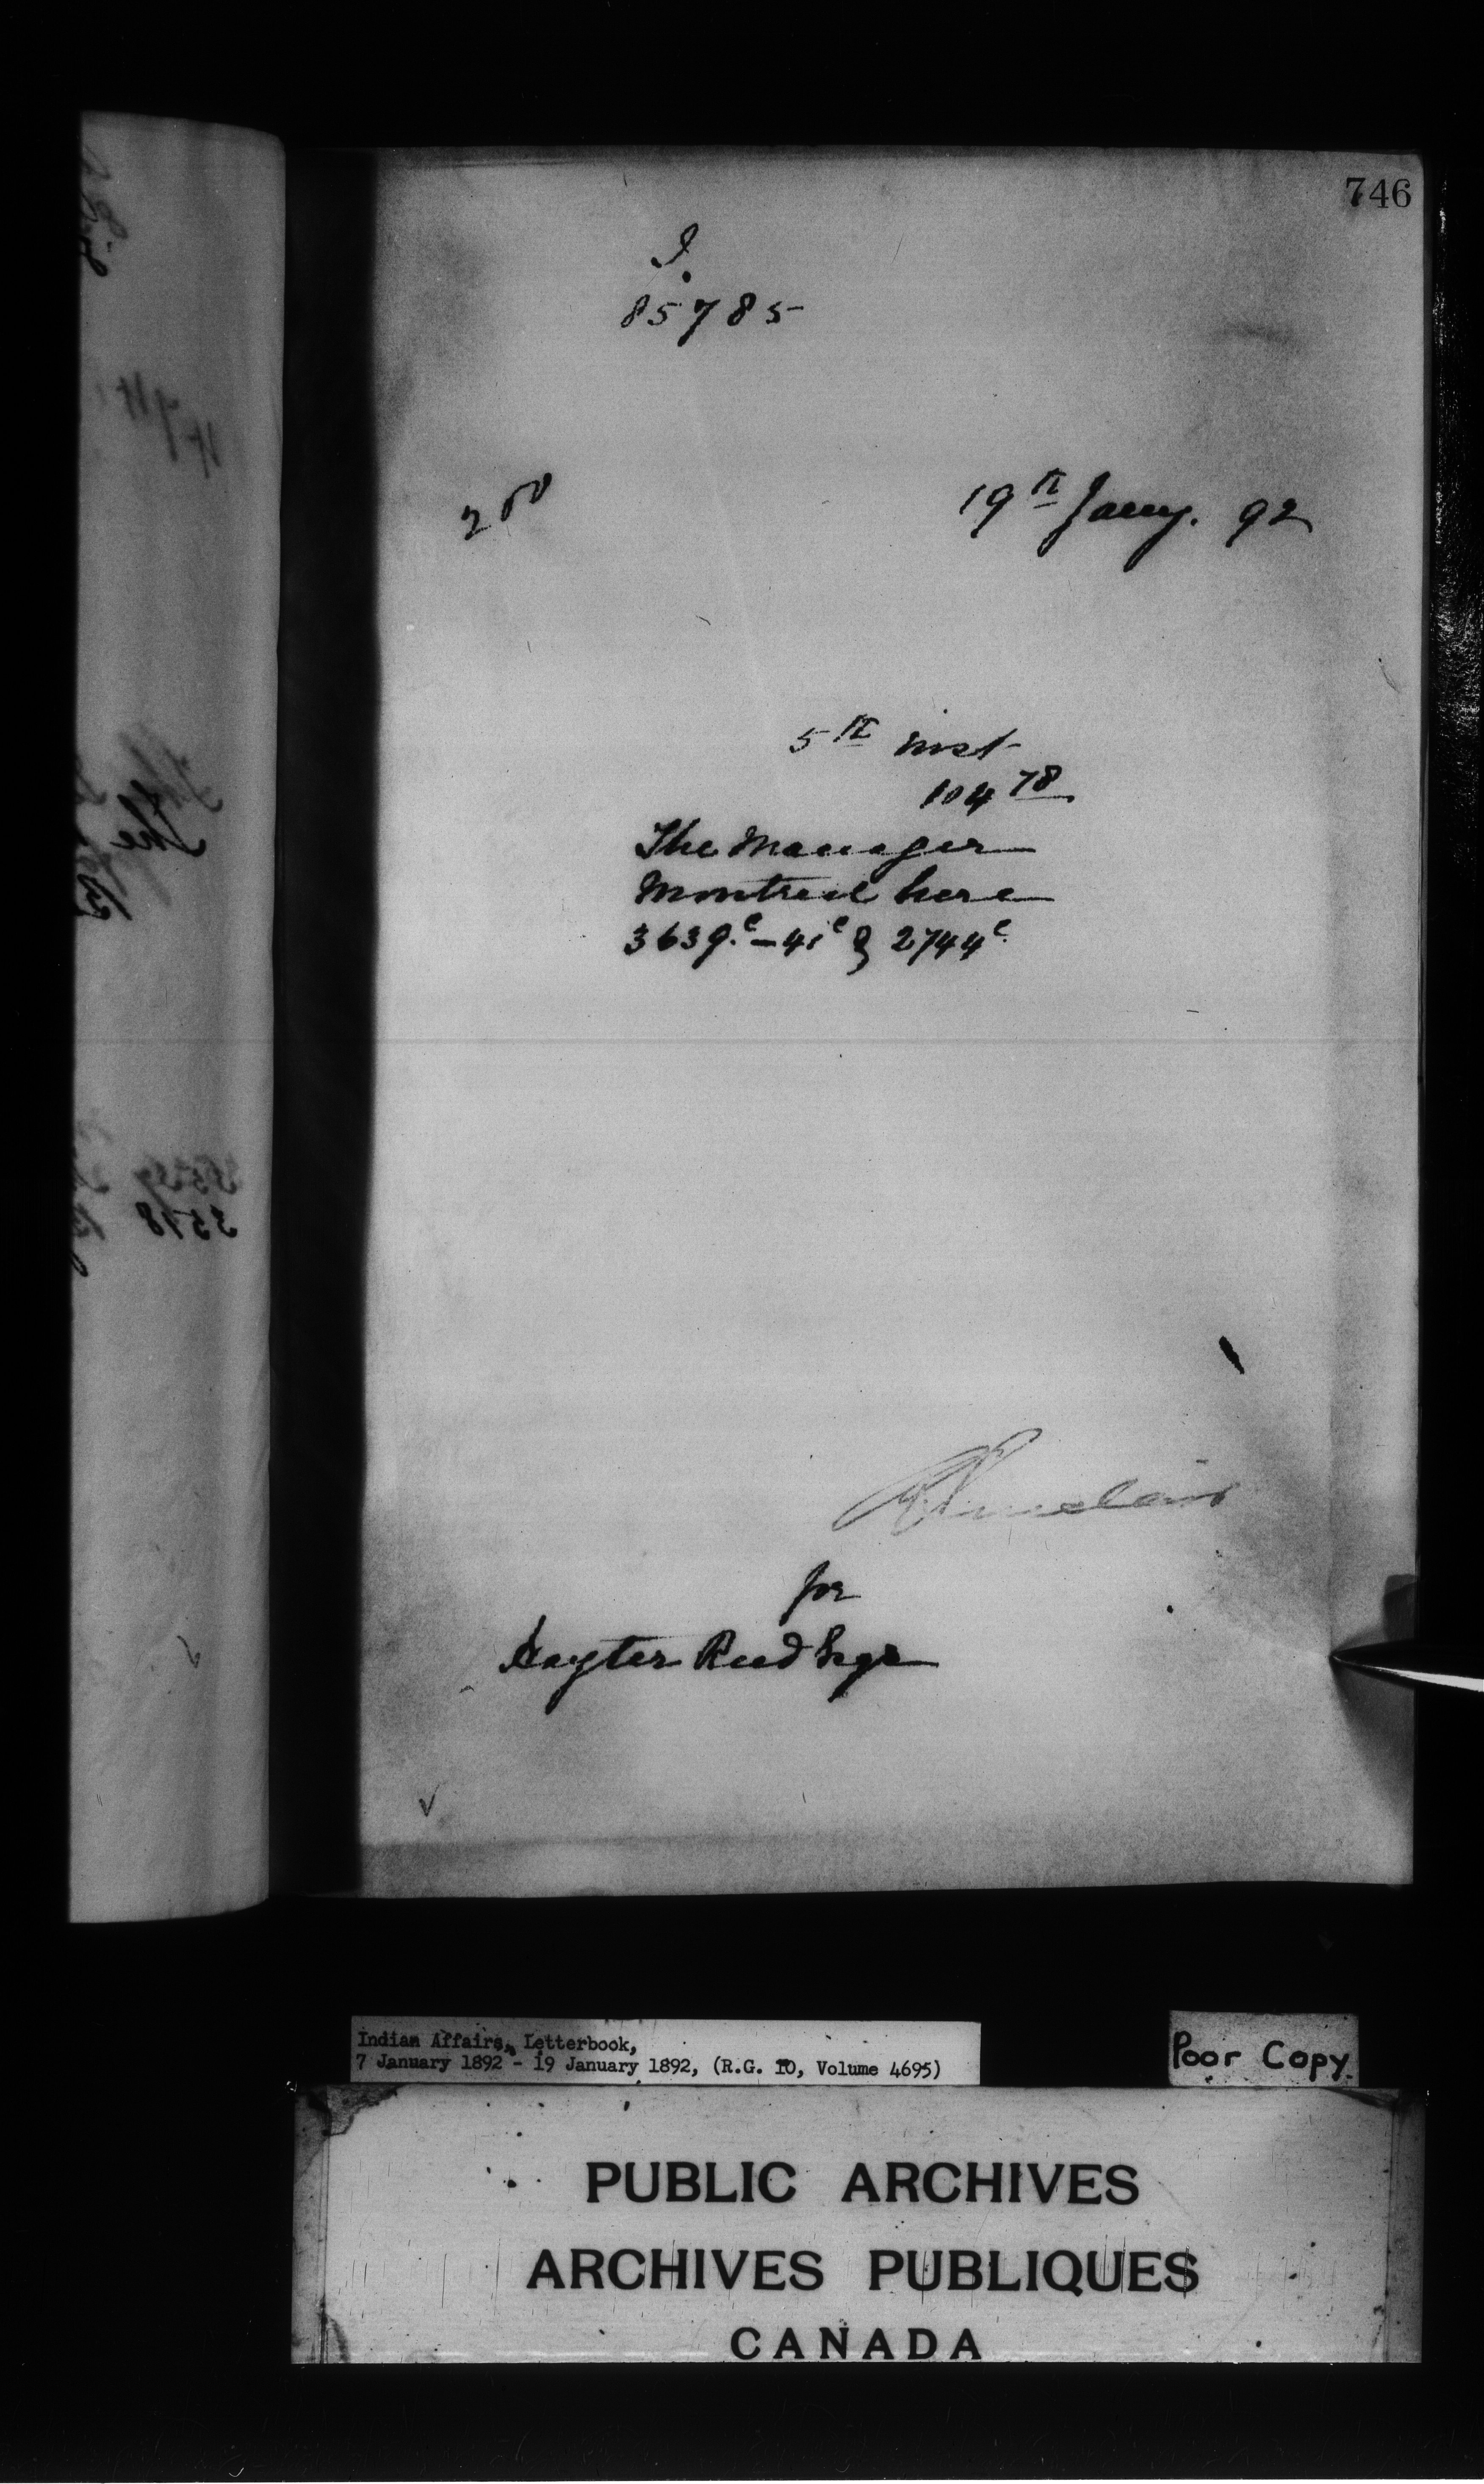 746
I.
85785
200
19th Jany. 92
5th inst
104 78
The Manager
Montreal here
3639.c - 41c & 2744c.
Sinclair
for
Hayter Reed Esqr
Indian Affairs, Letterbook,
7 January 1892 - 19 January 1892, (R.G. 10, Volume 4695)
Poor Copy.
PUBLIC ARCHIVES
ARCHIVES PUBLIQUES
CANADA